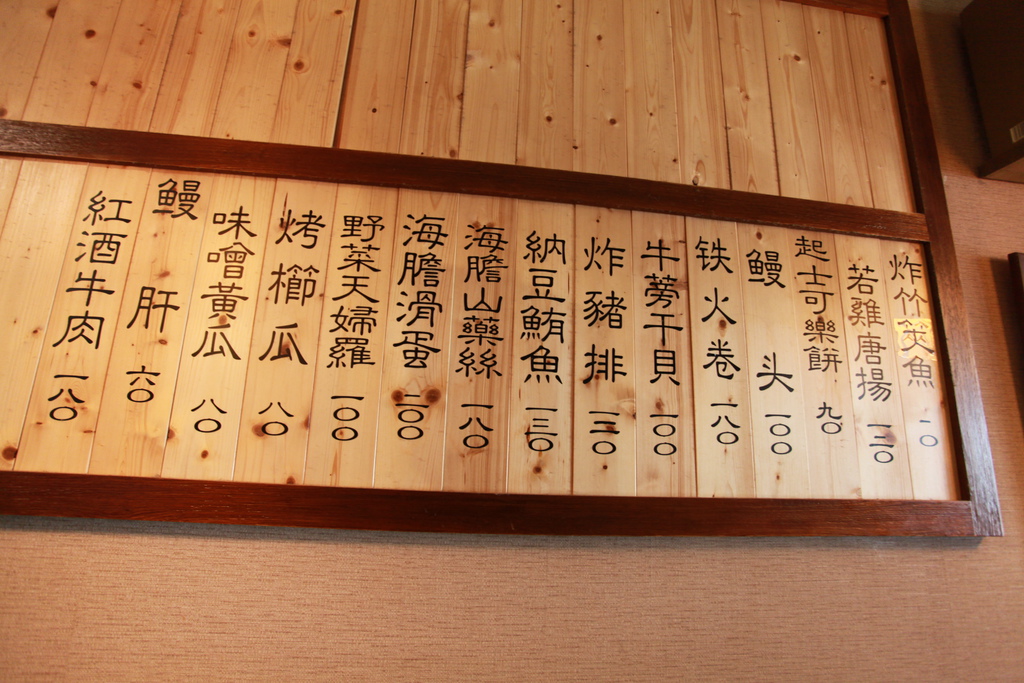 炸竹筴魚 一〇
若雞唐揚 一二〇
起士可樂餅 九〇
鳗头 一〇〇
铁火卷 一八〇
牛蒡干貝 一〇〇
炸豬排 一二〇
納豆鮪魚 一三〇
海膽山藥絲 一八〇
海膽滑蛋 二〇〇
野菜天婦羅 一〇〇
烤櫛瓜 八〇
味噌黃瓜 八〇
鳗肝 六〇
紅酒牛肉 一八〇